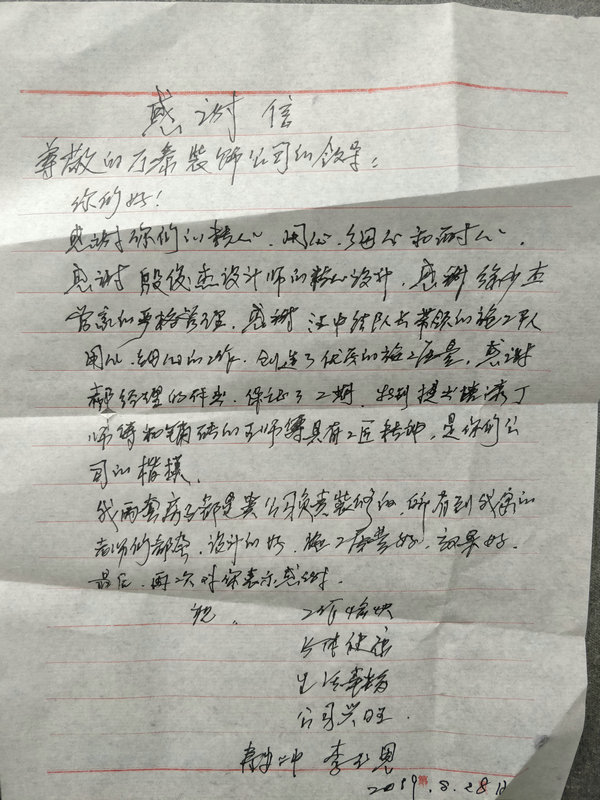 感谢信
尊敬的万泰装饰公司的领导：
你们好！
感谢你们的精心、用心、细心和耐心。
感谢殷俊杰设计师的精心设计，感谢徐少杰
管家的严格管理，感谢汪中结队长带领的施工队
用心、细心的工作，创造了优质的施工质量，感谢
经理的保证了工期，特别提出油漆丁
师傅和铺砖的王师傅具有工匠精神，是你们公
司的楷模。
我两套房子都是贵公司负责装修的，所有到我家的
老师们都夸，设计的好，施工质量好，效果好。
最后，再次对你表示感谢。
祝： 工作愉快
身体健康
生活幸福
公司兴旺
李玉恩
2019.8.28日